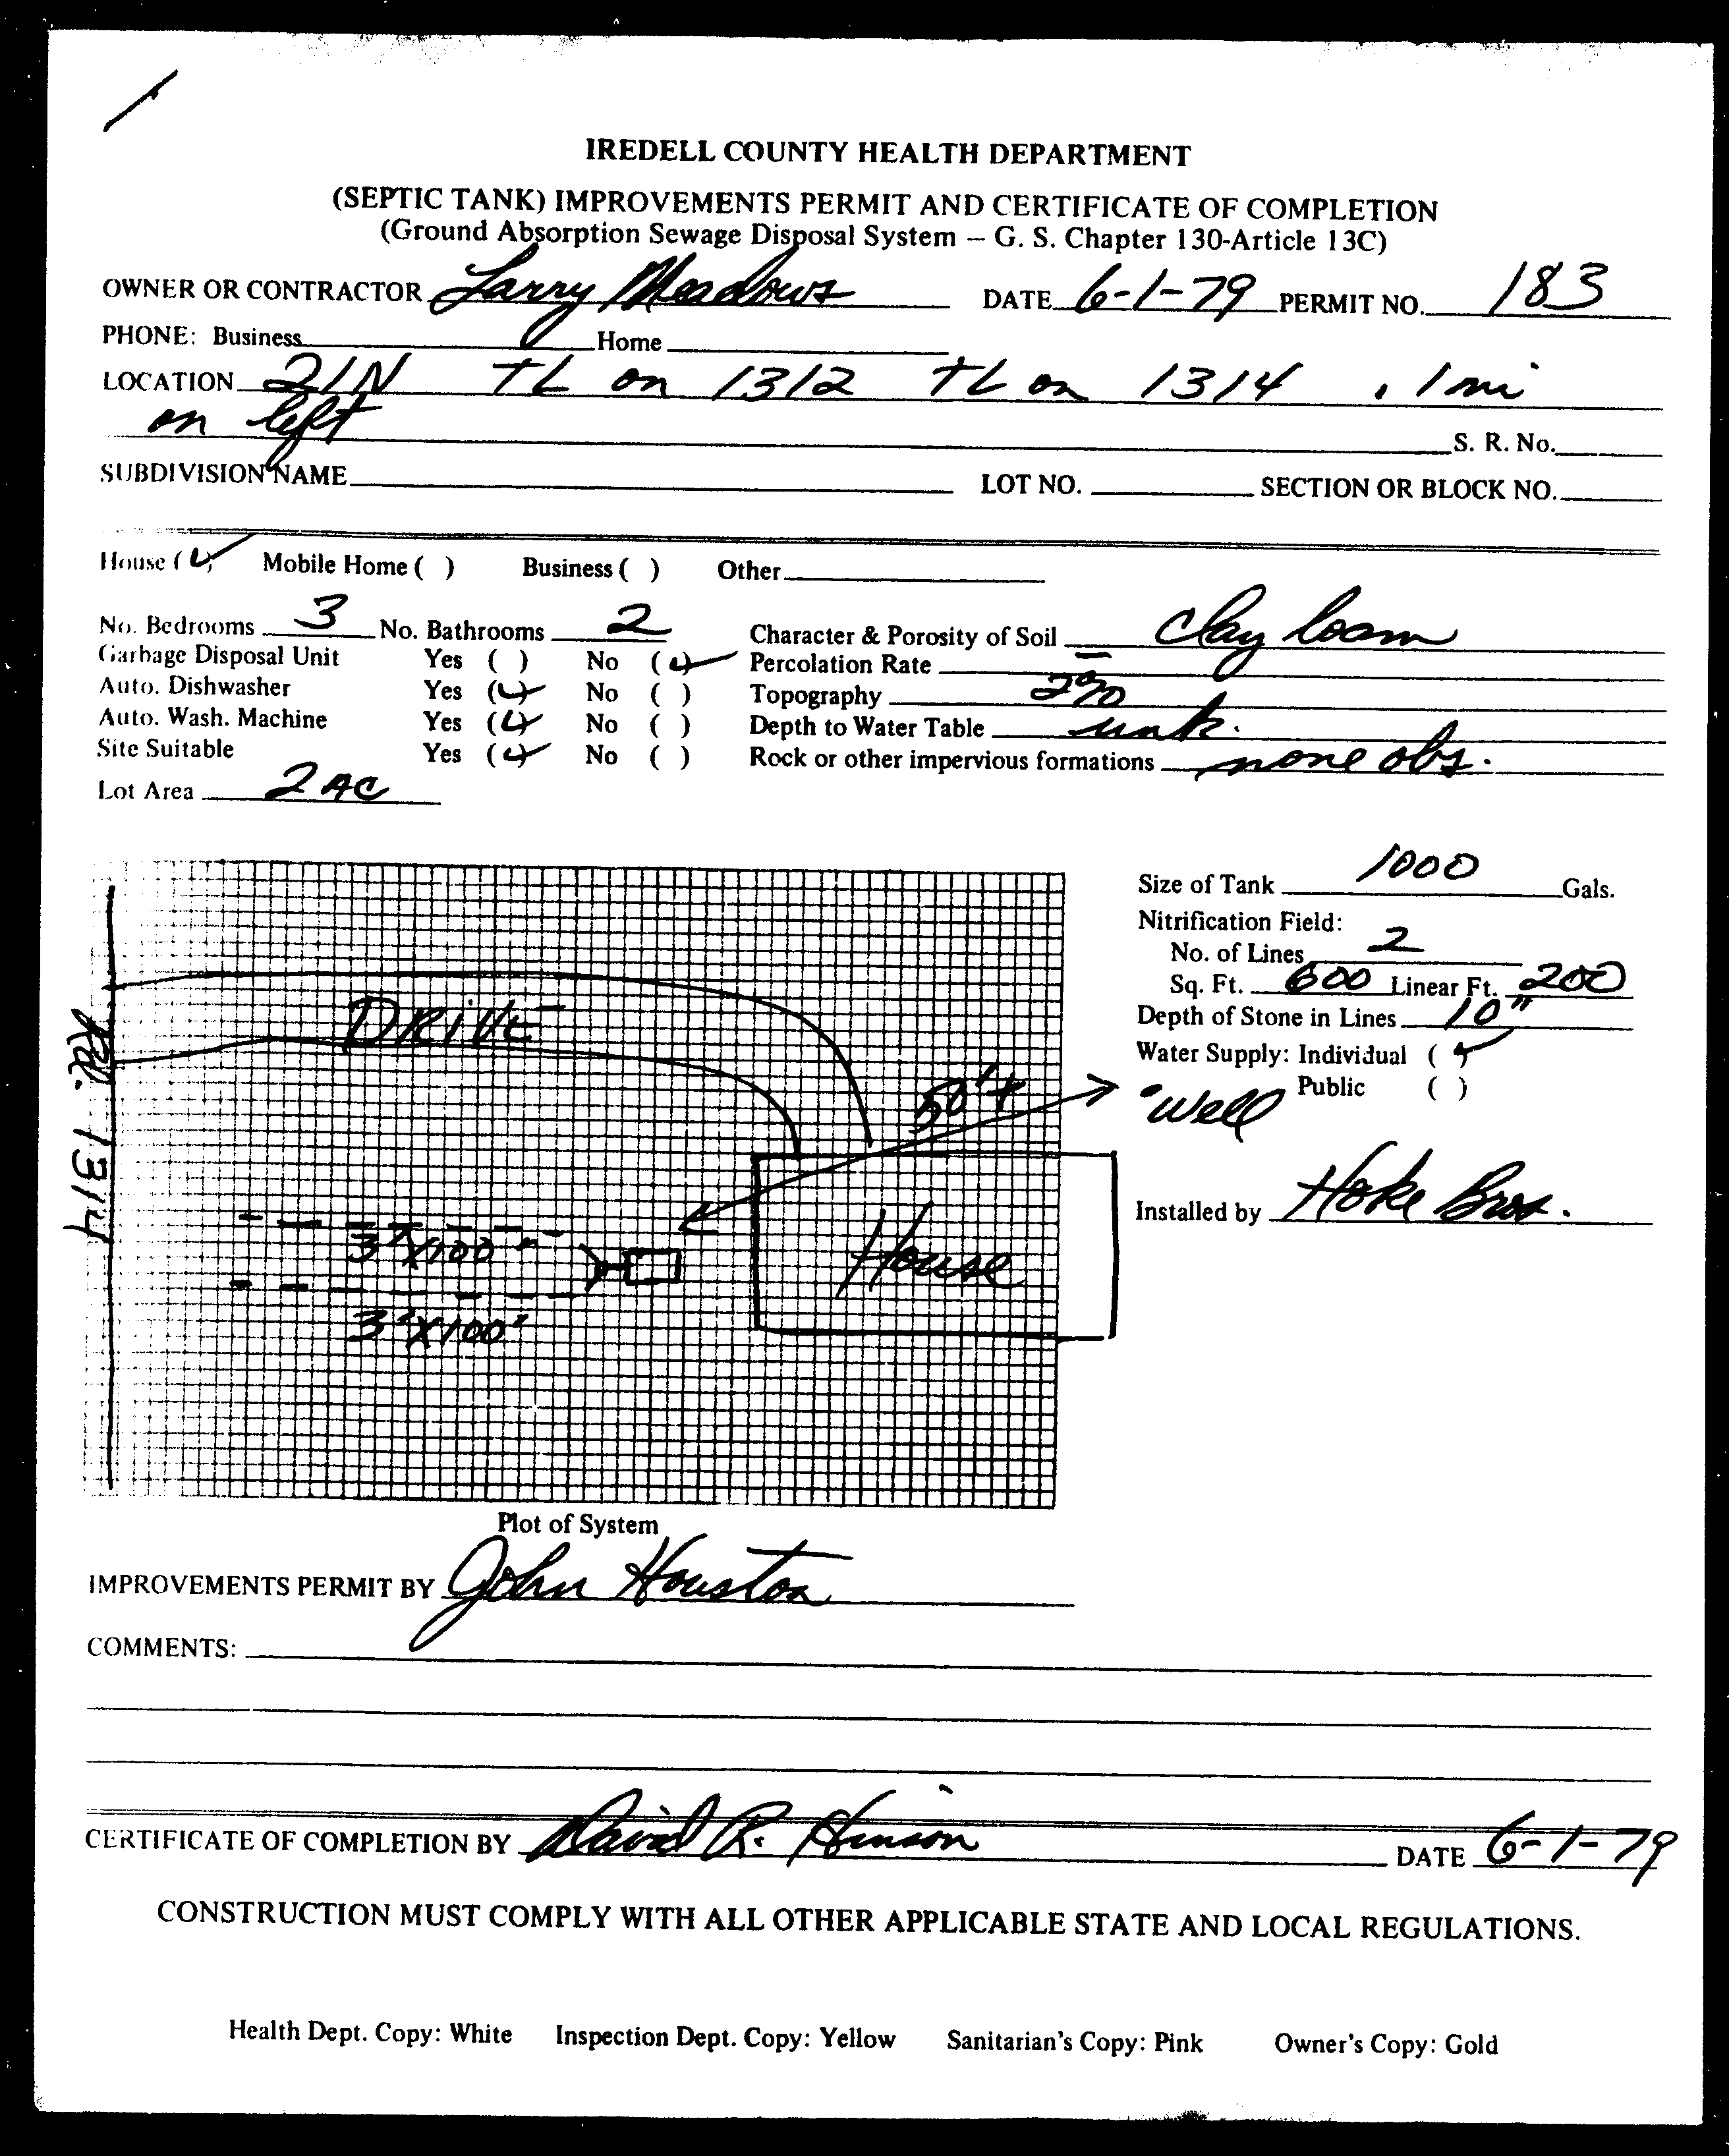 IREDELL COUNTY HEALTH DEPARTMENT
(SEPTIC TANK) IMPROVEMENTS PERMIT AND CERTIFICATE OF COMPLETION
(Ground Absorption Sewage Disposal System – G. S. Chapter 130-Article 13C)
OWNER OR CONTRACTOR Larry Meadows DATE 6-1-79 PERMIT NO. 183
PHONE: Business Home
LOCATION 21N TL on 1312 TL on 1314 .1 mi
on left
S. R. No.
SUBDIVISION NAME LOT NO. SECTION OR BLOCK NO.
House (✓) Mobile Home ( ) Business ( ) Other
No. Bedrooms 3 No. Bathrooms 2 Character & Porosity of Soil Clay loam
Garbage Disposal Unit Yes ( ) No (✓) Percolation Rate –
Auto. Dishwasher Yes (✓) No ( ) Topography 2%
Auto. Wash. Machine Yes (✓) No ( ) Depth to Water Table unk.
Site Suitable Yes (✓) No ( ) Rock or other impervious formations none obs.
Lot Area 2 AC
Size of Tank 1000 Gals.
Nitrification Field:
No. of Lines 2
Sq. Ft. 600 Linear Ft. 200
Depth of Stone in Lines 10"
Water Supply: Individual (✓)
Public ( )
Well
Installed by Hoke Bros.
DRIVE
Rd. 1314
50'+
3'X100'
House
3'X100'
Plot of System
IMPROVEMENTS PERMIT BY John Houston
COMMENTS:
CERTIFICATE OF COMPLETION BY David R. Hinson DATE 6-1-79
CONSTRUCTION MUST COMPLY WITH ALL OTHER APPLICABLE STATE AND LOCAL REGULATIONS.
Health Dept. Copy: White Inspection Dept. Copy: Yellow Sanitarian's Copy: Pink Owner's Copy: Gold